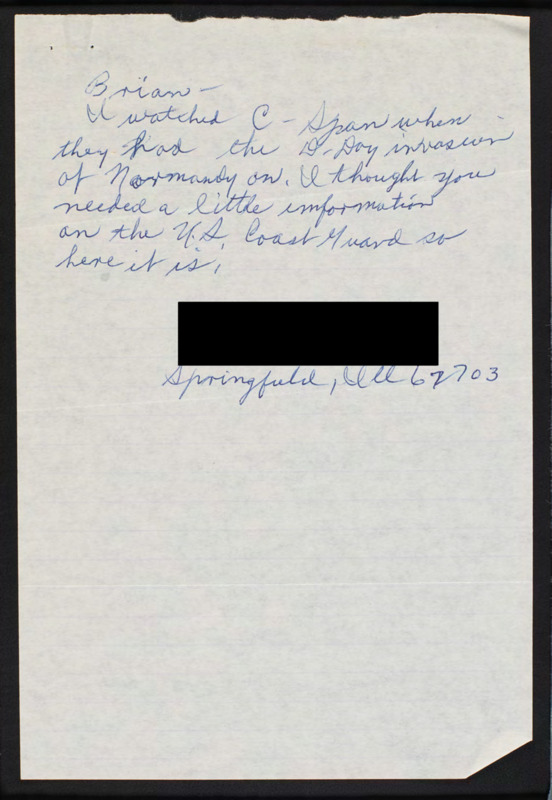 Brian -
I watched C-Span when
they had the D-Day invasion
of Normandy on. I thought you
needed a little information
on the U.S. Coast Guard so
here it is.
Springfield, Ill 62703